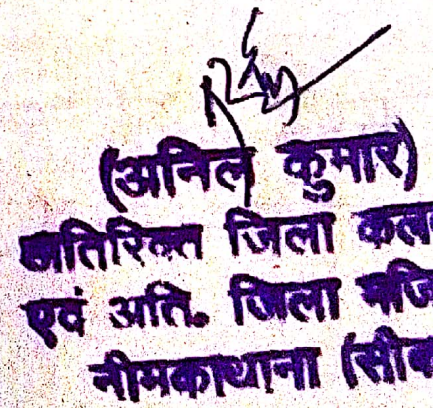 (अनिल कुमार)
अतिरिक्त जिला कल
एवं अति. जिला मजि
नीमकाथाना (सीक